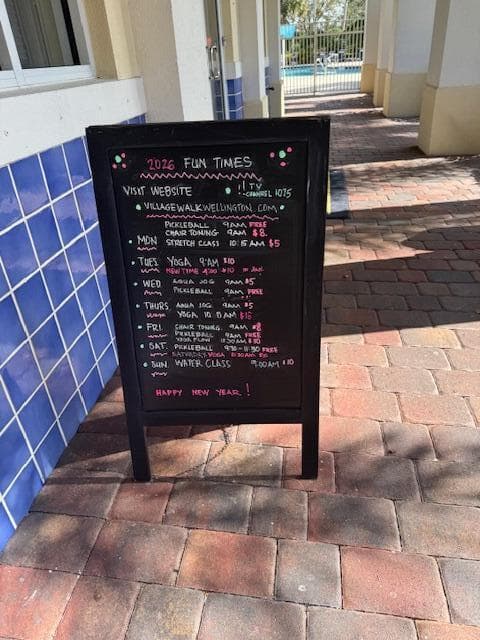 2026 FUN TIMES
VISIT WEBSITE !! TV CHANNEL 1075
VILLAGEWALKWELLINGTON.COM
PICKLEBALL 9AM FREE
CHAIR TONING 9AM $8
MON STRETCH CLASS 10:15AM $5
TUES YOGA 9AM $10
NEW TIME 4:00 $10
WED AQUA JOG 9AM $5
PICKLEBALL 9AM FREE
THURS AQUA JOG 9AM $5
YOGA AM
FRI. CHAIR TONING 9AM $8
PICKLEBALL 9AM FREE
YOGA FLOW $10
SAT. PICKLEBALL 9:30-11:30 FREE
SATURDAY YOGA
SUN WATER CLASS 9:00AM $10
HAPPY NEW YEAR!